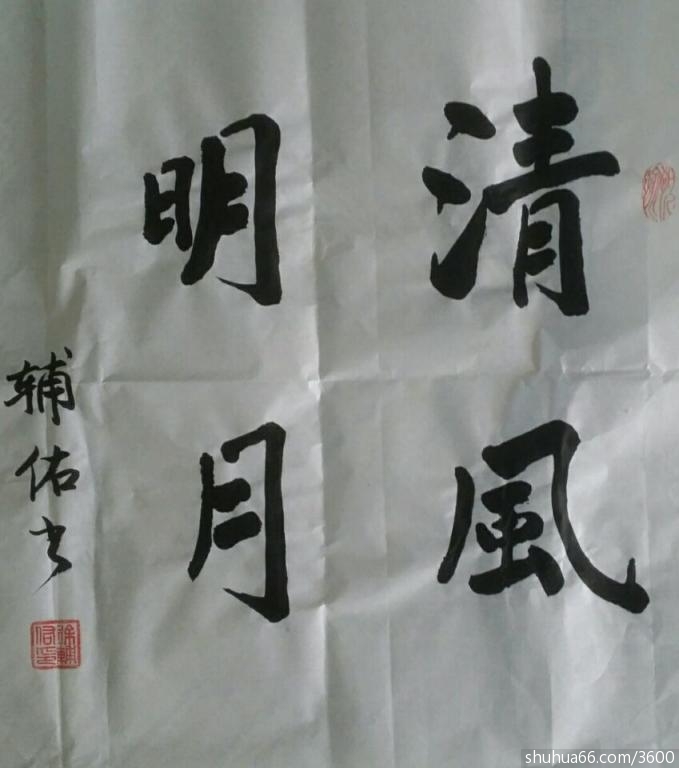 清風
明月
辅佑书
徐輔佑印
shuhua66.com/3600